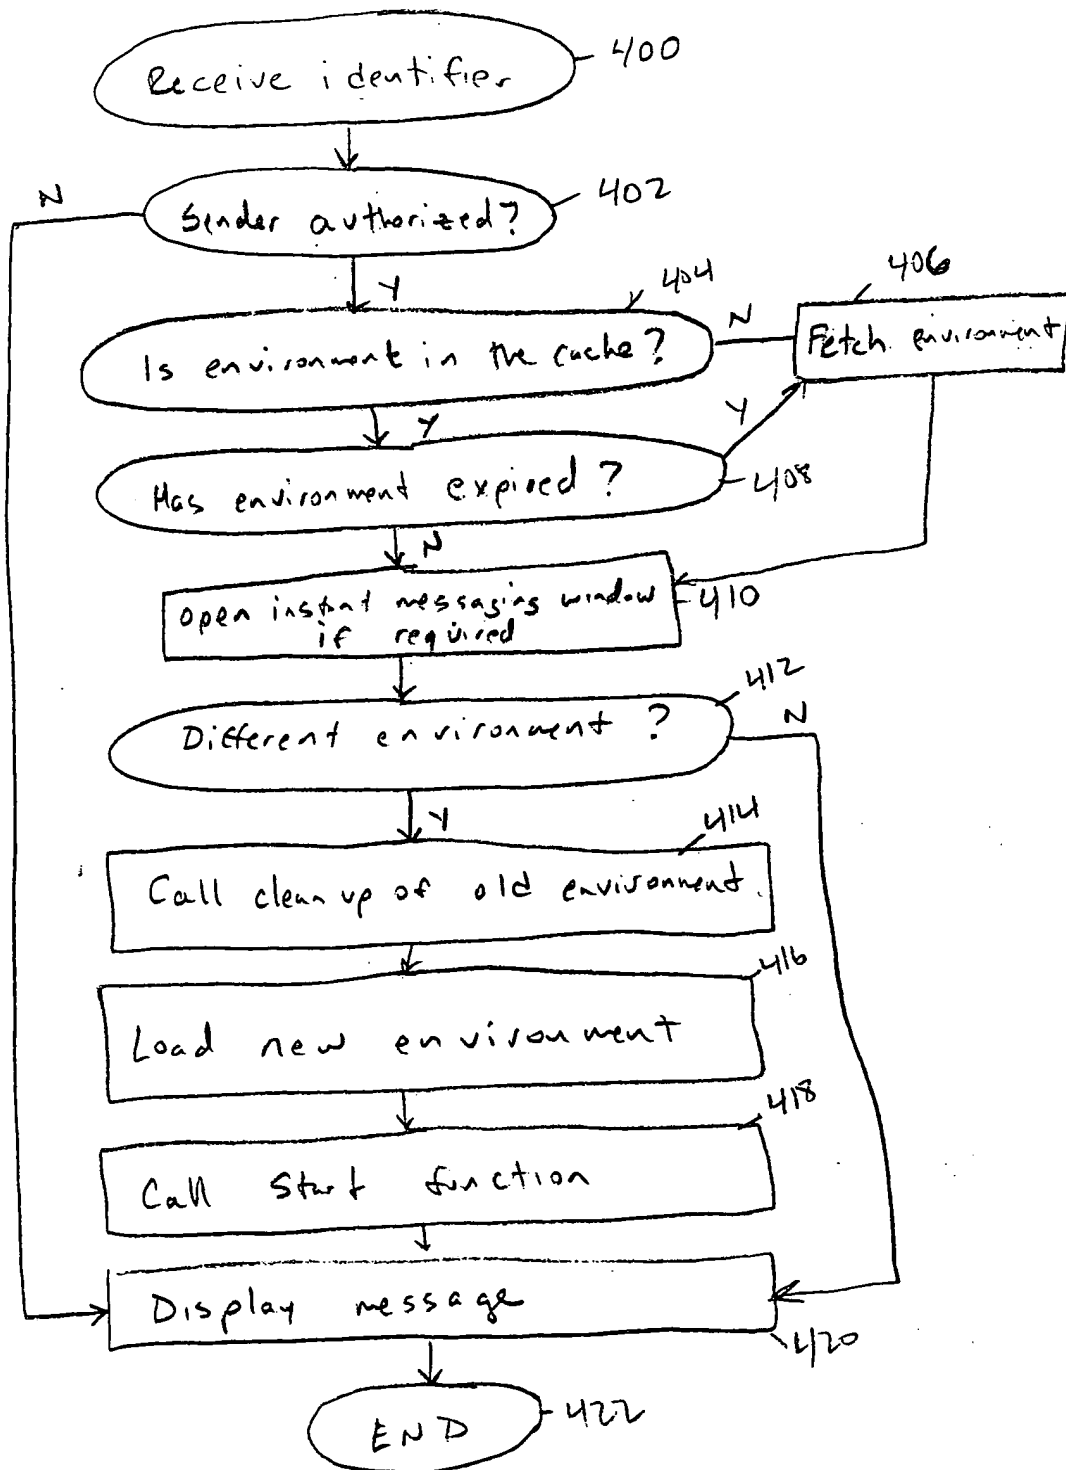 Receive identifier
400
N
Sender authorized?
402
Y
404
406
Is environment in the cache?
N
Fetch environment
Y
Y
Has environment expired?
408
N
open instant messaging window
if required
410
412
Different environment?
N
Y
414
Call cleanup of old environment.
416
Load new environment
418
Call Start function
Display message
420
END
422